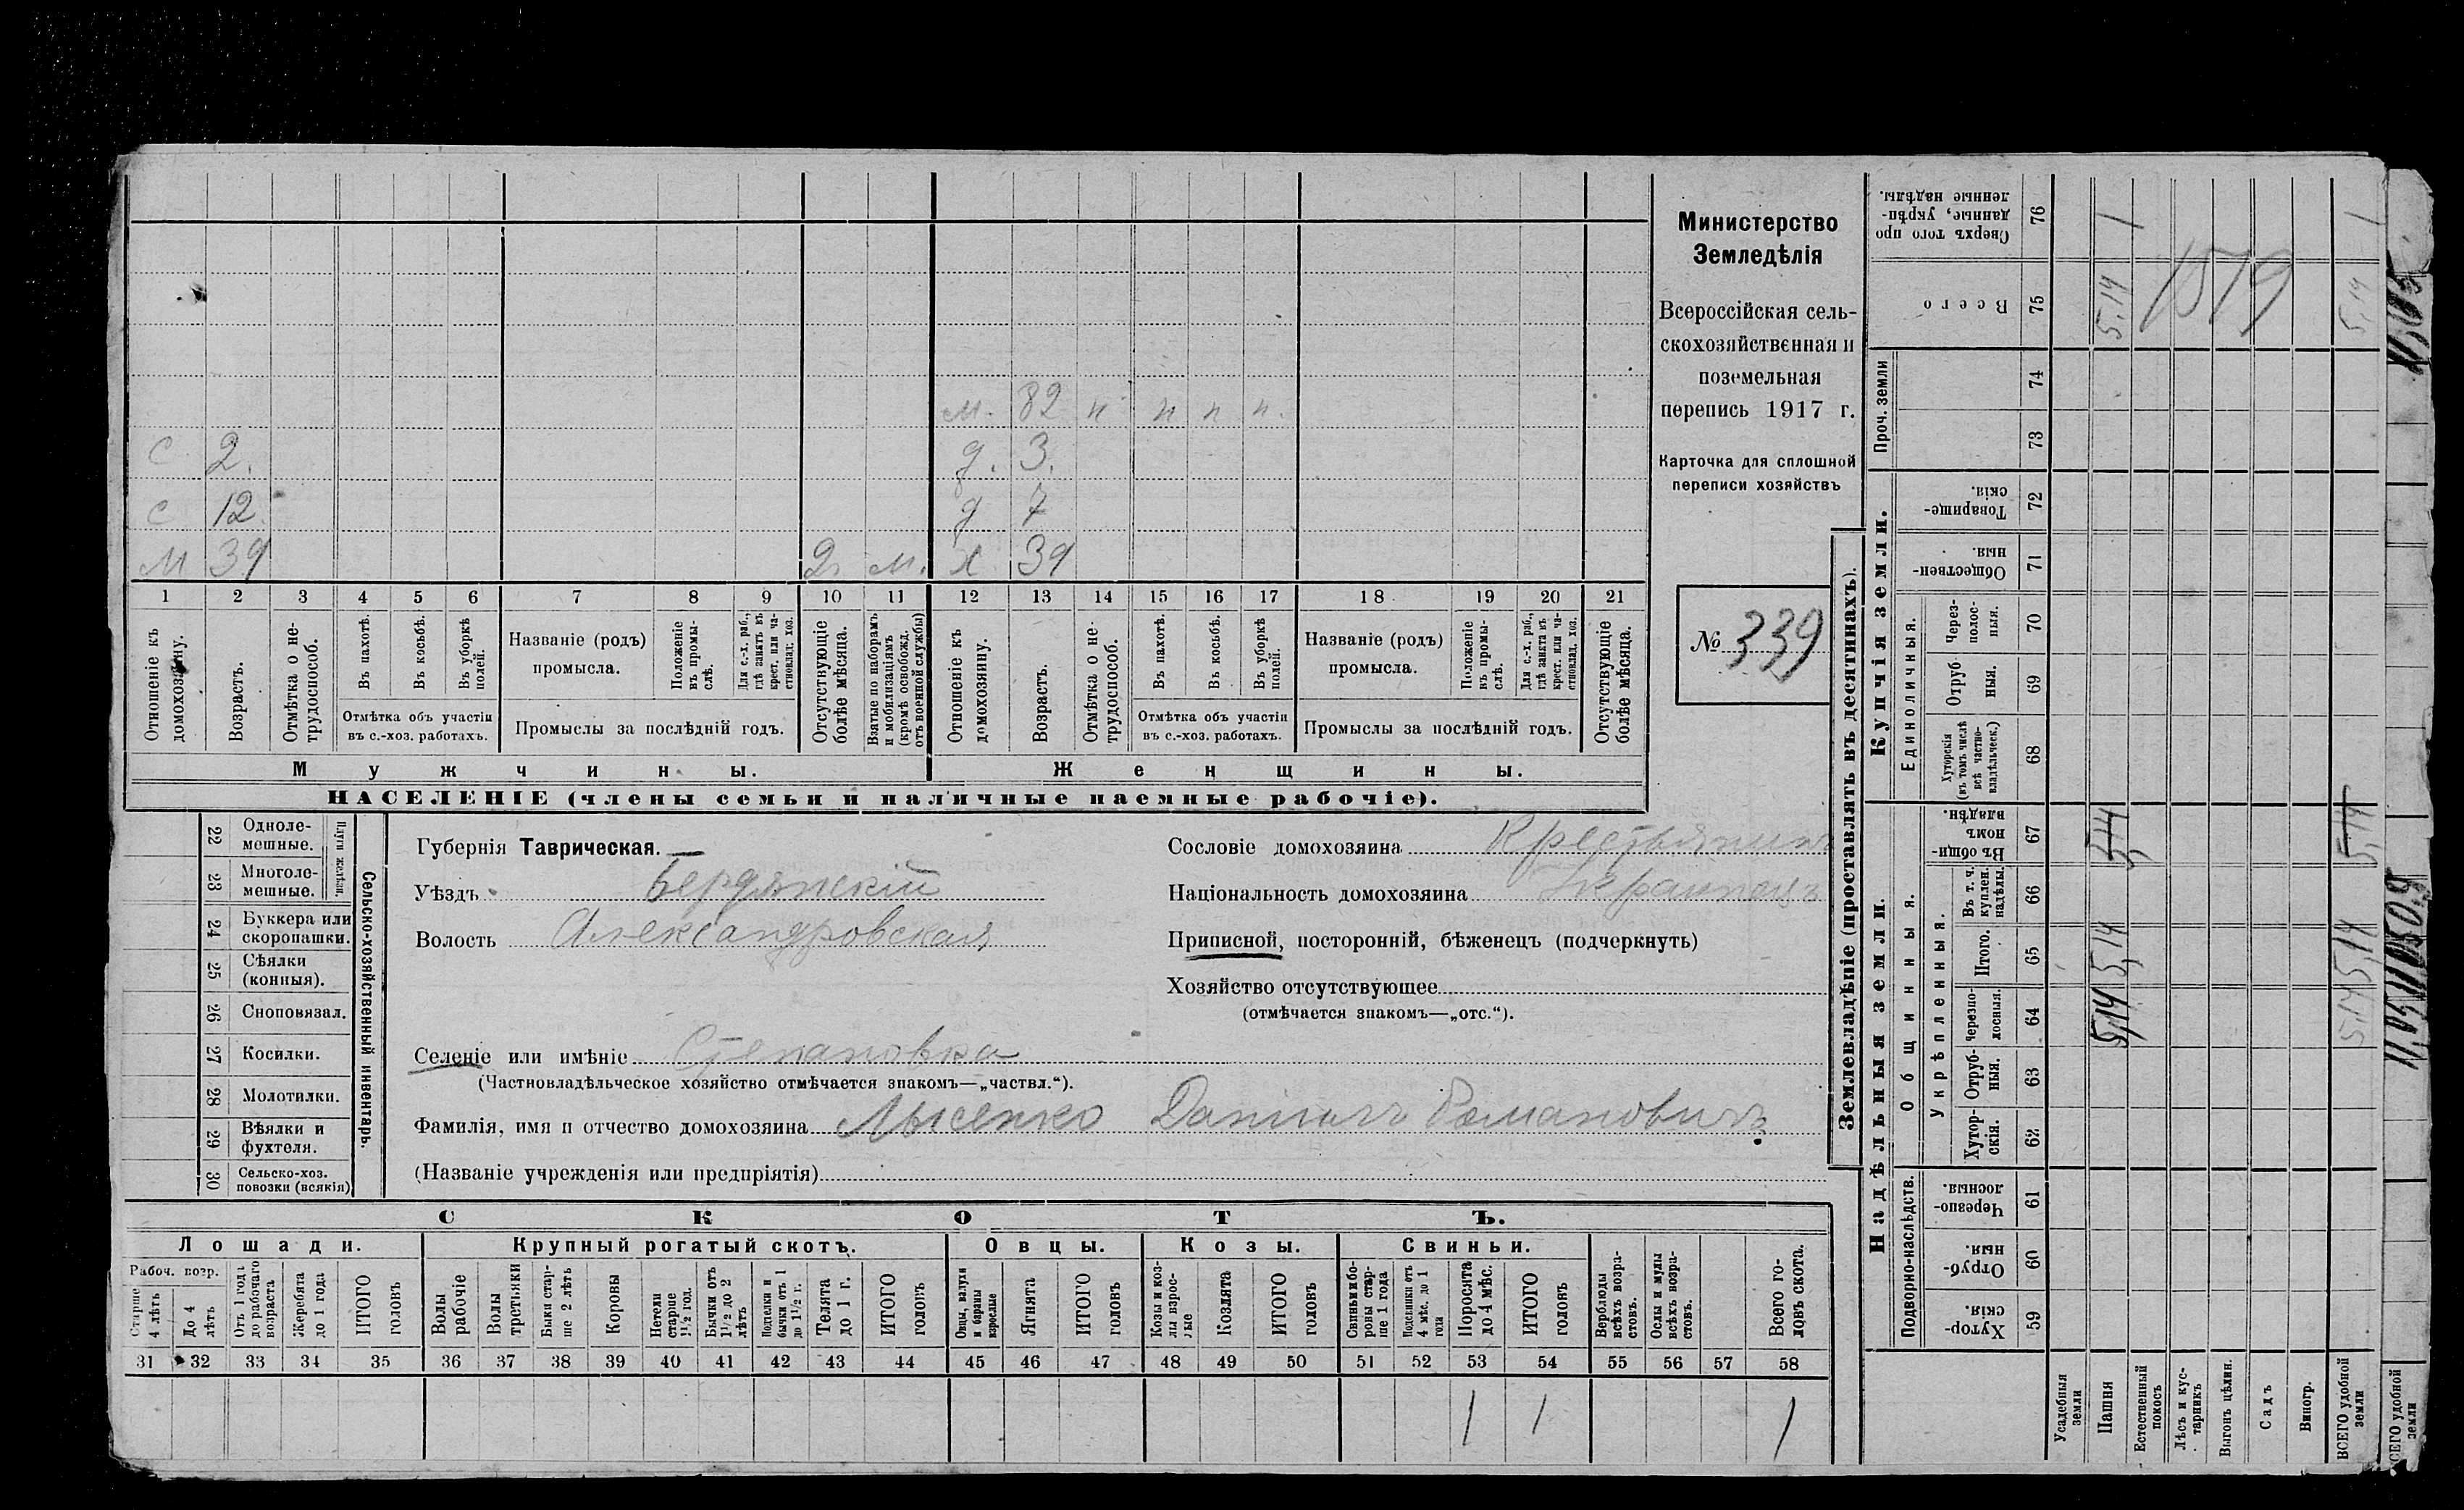 Министерство
Земледѣлія
Всероссійская сель-
скохозяйственная и
поземельная
перепись 1917 г.
Карточка для сплошной
переписи хозяйствъ
№ 339
м. 82 н н н н.
с 2. д. 3.
с 12 д 7
М 39 2 м. х 39
1 2 3 4 5 6 7 8 9 10 11 12 13 14 15 16 17 18 19 20 21
Отношеніе къ домохозяину.
Возрастъ.
Отмѣтка о не-трудоспособ.
Въ пахотѣ.
Въ косьбѣ.
Въ уборкѣ полей.
Отмѣтка объ участіи
въ с.-хоз. работахъ.
Названіе (родъ)
промысла.
Положеніе въ промы-слѣ.
Для с.-х. раб., гдѣ занятъ въ крест. или ча-стновлад. хоз.
Промыслы за послѣдній годъ.
Отсутствующіе болѣе мѣсяца.
Взятые по наборамъ и мобилизаціямъ (кромѣ освобожд. отъ военной службы)
Отношеніе къ домохозяину.
Возрастъ.
Отмѣтка о не-трудоспособ.
Въ пахотѣ.
Въ косьбѣ.
Въ уборкѣ полей.
Отмѣтка объ участіи
въ с.-хоз. работахъ.
Названіе (родъ)
промысла.
Положеніе въ промы-слѣ.
Для с.-х. раб., гдѣ занята въ крест. или ча-стновлад. хоз.
Промыслы за послѣдній годъ.
Отсутствующіе болѣе мѣсяца.
Мужчины. Женщины.
НАСЕЛЕНІЕ (члены семьи и наличные наемные рабочіе).
22 Одноле-мешные.
23 Многоле-мешные.
24 Буккера или скоропашки.
25 Сѣялки (конныя).
26 Сноповязал.
27 Косилки.
28 Молотилки.
29 Вѣялки и фухтеля.
30 Сельско-хоз. повозки (всякія)
Сельско-хозяйственный инвентарь.
Губернія Таврическая.
Уѣздъ Бердянскій
Волость Александровская
Селеніе или имѣніе Степановка
(Частновладѣльческое хозяйство отмѣчается знакомъ—„частвл.“).
Фамилія, имя и отчество домохозяина Лысенко Даніилъ Романовичъ
(Названіе учрежденія или предпріятія)
Сословіе домохозяина Крестьянинъ
Національность домохозяина
Приписной, посторонній, бѣженецъ (подчеркнуть)
Хозяйство отсутствующее
(отмѣчается знакомъ—„отс.“).
СКОТЪ.
Лошади. Крупный рогатый скотъ. Овцы. Козы. Свиньи.
Рабоч. возр.
Старше 4 лѣтъ
До 4 лѣтъ
Отъ 1 года до рабочаго возраста
Жеребята до 1 года
ИТОГО головъ
Волы рабочіе
Волы третьяки
Быки стар-ше 2 лѣтъ
Коровы
Нетели старше 1½ год.
Бычки отъ 1½ до 2 лѣтъ
Подтелки и бычки отъ 1 до 1½ г.
Телята до 1 г.
ИТОГО головъ
Овцы, валухи и бараны взрослые
Ягнята
ИТОГО головъ
Козы и коз-лы взрос-лые
Козлята
ИТОГО головъ
Свиньи и бо-ровы стар-ше 1 года
Подсвинки отъ 4 мѣс. до 1 года
Поросята до 4 мѣс.
ИТОГО головъ
Верблюды всѣхъ возра-стовъ.
Ослы и мулы всѣхъ возра-стовъ.
Всего го-ловъ скота.
31 32 33 34 35 36 37 38 39 40 41 42 43 44 45 46 47 48 49 50 51 52 53 54 55 56 57 58
1 1 1
Землевладѣніе (проставлять въ десятинахъ).
Надѣльныя земли.
Купчія земли.
Проч. земли
Подворно-наслѣдств.
Общинныя.
Укрѣпленныя.
Единоличныя.
Хутор-скія. 59
Отруб-ныя. 60
Черезпо-лосныя. 61
Хутор-скія. 62
Отруб-ныя. 63
Черезпо-лосныя. 64
Итого. 65
Въ т. ч. куплен. надѣлы. 66
Въ общи-номъ владѣн. 67
Хуторскія (въ томъ числѣ всѣ частно-владѣльческ.) 68
Отруб-ныя. 69
Через-полос-ныя. 70
Обществен-ныя. 71
Товарище-скія. 72
73
74
Всего 75
Сверхъ того про-данные, укрѣп-ленные надѣлы. 76
Усадебныя земли
Пашня 5,14 5,14 5,14 5,14 1
Естественный покосъ
Лѣсъ и кус-тарникъ
Выгонъ цѣлин.
Садъ
Виногр.
ВСЕГО удобной земли 5,14 5,14 5,14 5,14 1
1579
ВСЕГО удобной земли